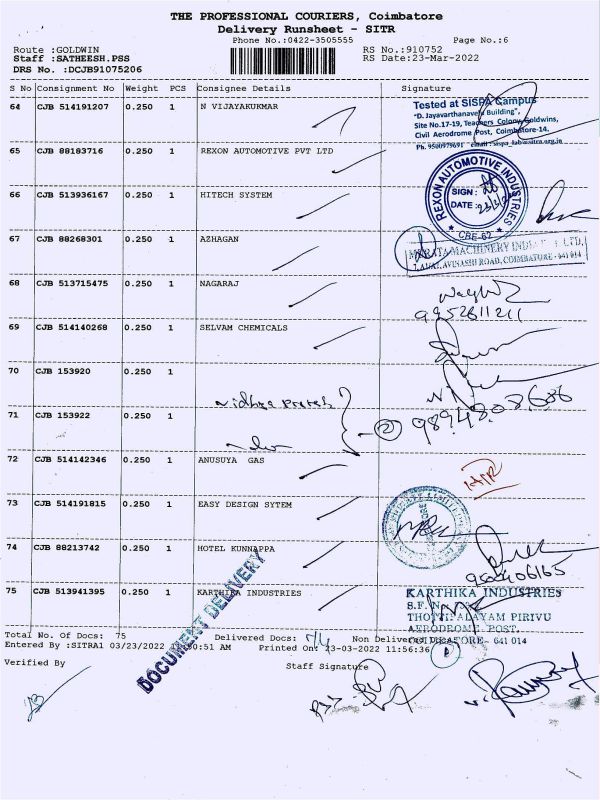 THE PROFESSIONAL COURIERS, Coimbatore
Delivery Runsheet - SITR
Phone No.:0422-3505555
Page No.:6
Route :GOLDWIN
RS No.:910752
Staff :SATHEESH.PSS
RS Date:23-Mar-2022
DRS No. :DCJB91075206
S No Consignment No Weight PCS Consignee Details Signature
64 CJB 514191207 0.250 1 N VIJAYAKUKMAR
Tested at SISPA Campus
"D. Jayavarthanavelu Building",
Site No.17-19, Teachers Colony, Goldwins,
Civil Aerodrome Post, Coimbatore-14.
65 CJB 88183716 0.250 1 REXON AUTOMOTIVE PVT LTD
REXON AUTOMOTIVE INDUSTRIES
SIGN:
DATE:
CBE-62
66 CJB 513936167 0.250 1 HITECH SYSTEM
67 CJB 88268301 0.250 1 AZHAGAN
AVINASHI ROAD, COIMBATORE - 641 014
68 CJB 513715475 0.250 1 NAGARAJ
9952811211
69 CJB 514140268 0.250 1 SELVAM CHEMICALS
70 CJB 153920 0.250 1
71 CJB 153922 0.250 1
2
72 CJB 514142346 0.250 1 ANUSUYA GAS
73 CJB 514191815 0.250 1 EASY DESIGN SYTEM
74 CJB 88213742 0.250 1 HOTEL KUNNAPPA
75 CJB 513941395 0.250 1 KARTHIKA INDUSTRIES
KARTHIKA INDUSTRIES
THOTTIPALAYAM PIRIVU
AERODROME POST,
COIMBATORE- 641 014
DOCUMENT DELIVERY
Total No. Of Docs: 75 Delivered Docs: 74 Non Delivered
Entered By :SITRA1 03/23/2022 Printed On: 23-03-2022 11:56:36
Verified By
Staff Signature